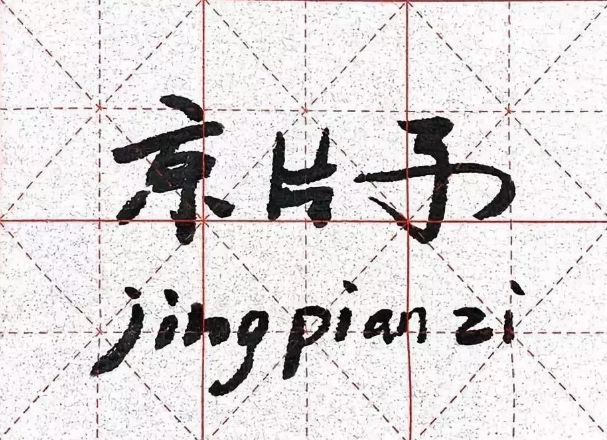 京片子
jing pian zi